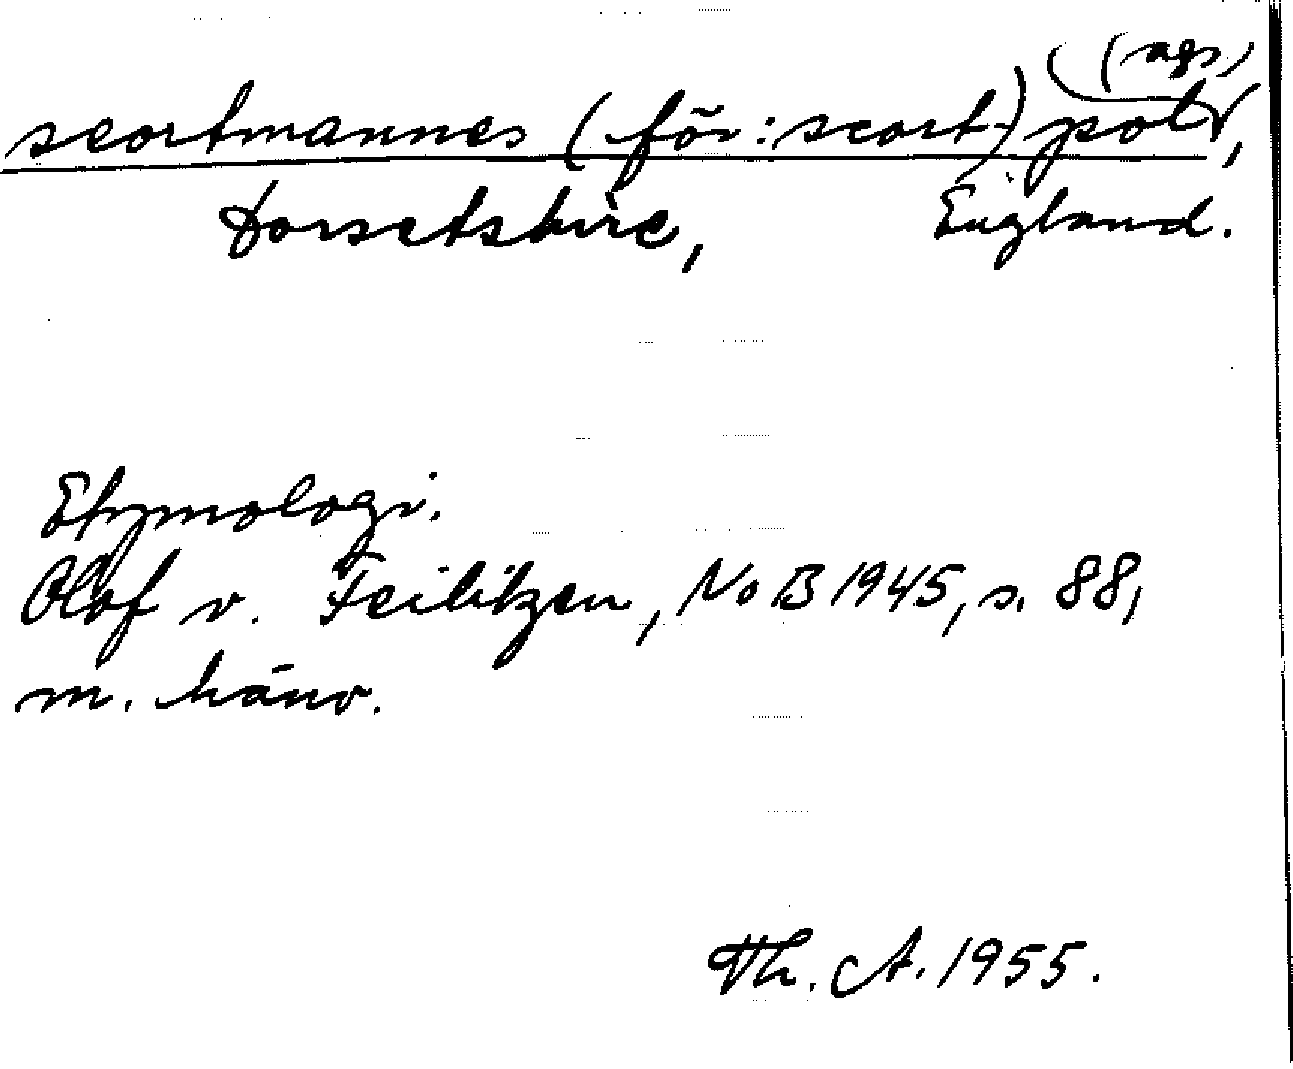 scortmannes (för: scort-) pol (ags.),
Dorsetshire, England.
Etymologi.
Olof v. Feilitzen, NoB 1945, s. 88,
m. hänv.
Th. A. 1955.